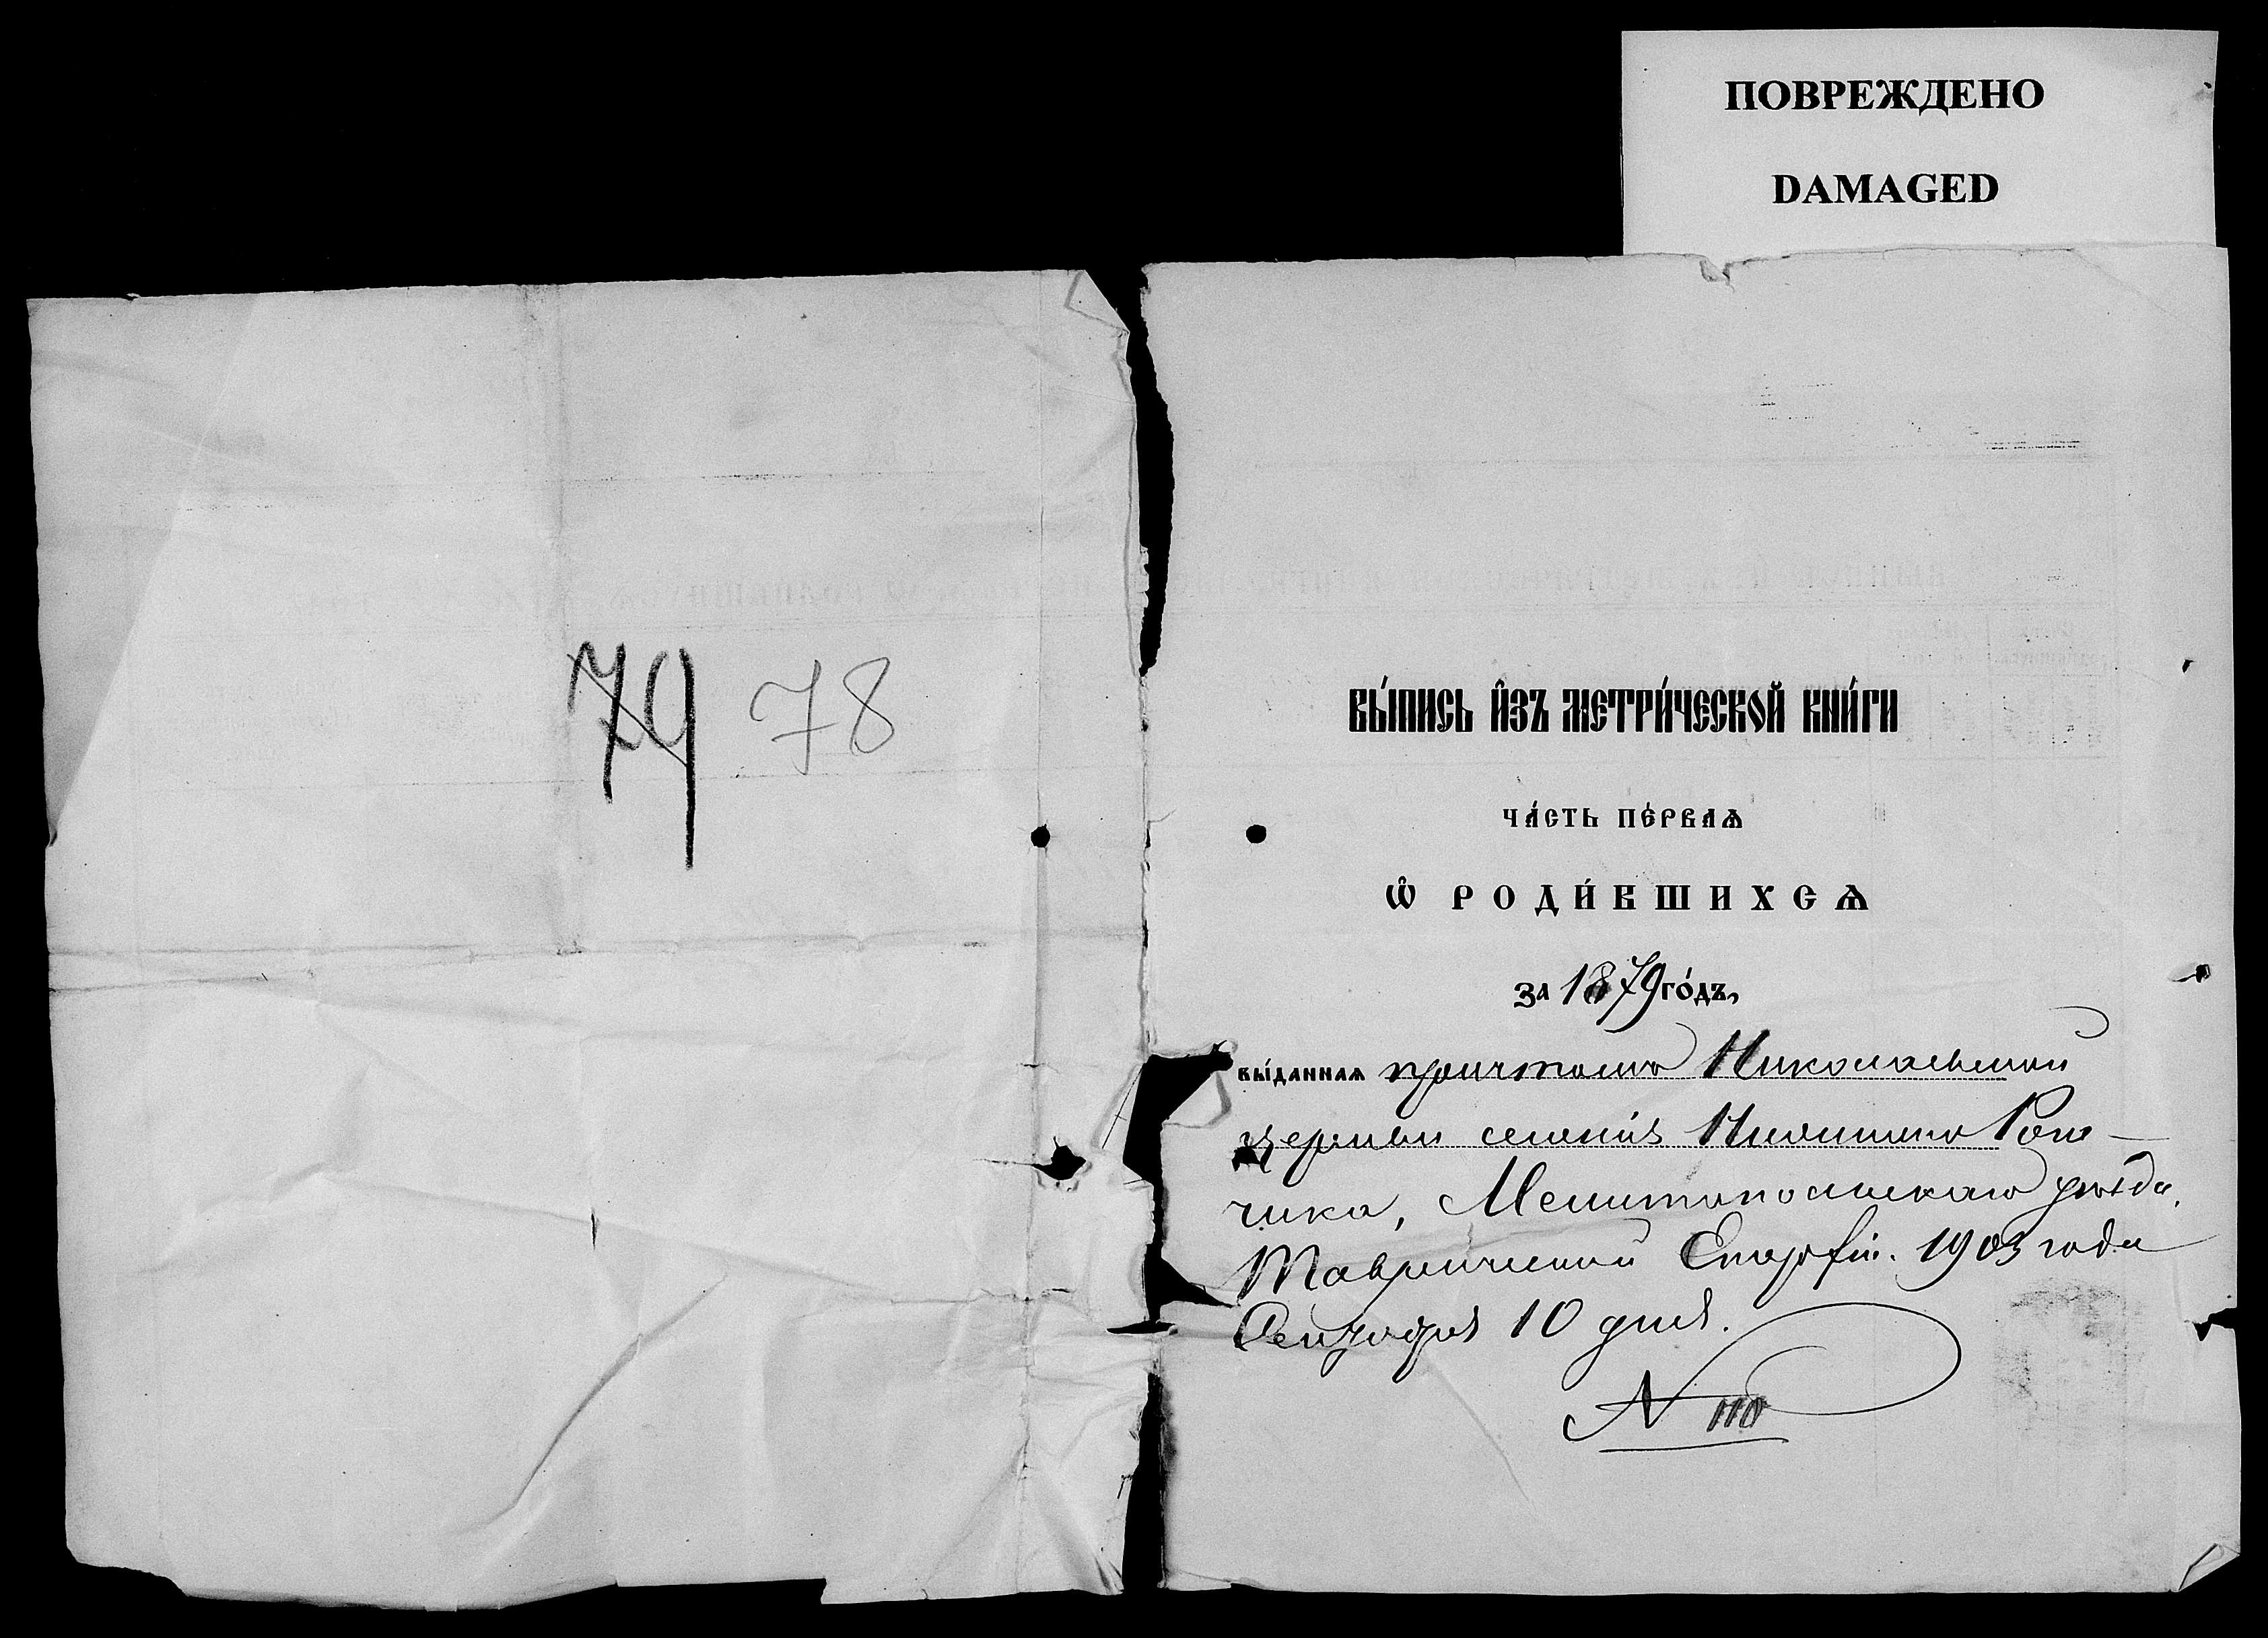 ПОВРЕЖДЕНО
DAMAGED
79 78
ВЫ́ПИСЬ И҆ЗЪ МЕТРИ́ЧЕСКОЙ КНИ́ГИ
ЧА́СТЬ ПЕ́РВАѦ
Ѡ҆ РОДИ́ВШИХСѦ
ЗА 1879 ГО́ДЪ,
ВЫ́ДАННАѦ причтомъ Николаевской
церкви селенія Нижняго Рога-
чика, Мелитопольскаго уѣзда,
Таврической Епархіи. 1903 года
Сентября 10 дня.
№ 110